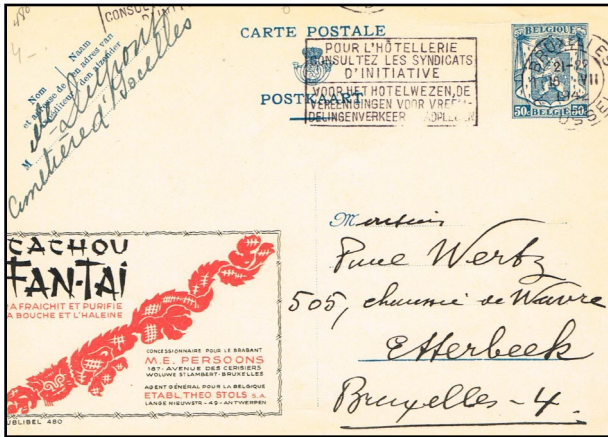 480
4-
CONSUL
Nom
et adresse de
l'expéditeur
Naam
en adres van
den afzender
M Dupont
Cimetière d'Ixelles
CARTE POSTALE
POSTKAART
POUR L'HÔTELLERIE
CONSULTEZ LES SYNDICATS
D'INITIATIVE
VOOR HET HOTELWEZEN, DE
VEREENIGINGEN VOOR VREEM-
DELINGENVERKEER
BELGIQUE
50c BELGIE 50c
21-22
16 VII
CACHOU
FAN-TAI
RAFRAICHIT ET PURIFIE
LA BOUCHE ET L'HALEINE
CONCESSIONNAIRE POUR LE BRABANT
M.E. PERSOONS
187-AVENUE DES CERISIERS
WOLUWE ST LAMBERT-BRUXELLES
AGENT GÉNÉRAL POUR LA BELGIQUE
ETABL. THEO STOLS S.A.
LANGE NIEUWSTR-49-ANTWERPEN
PUBLIBEL 480
Monsieur
Paul Wertz
505, chaussée de Wavre
Etterbeek
Bruxelles-4.